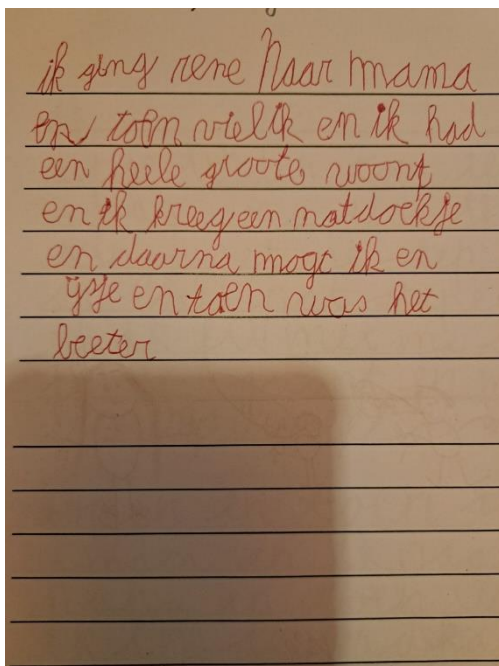 ik ging rene Naar mama
en toen viel ik en ik had
een heele groote woont
en ik kreeg een natdoekje
en daarna mogt ik en
ijsje en toen was het
beeter